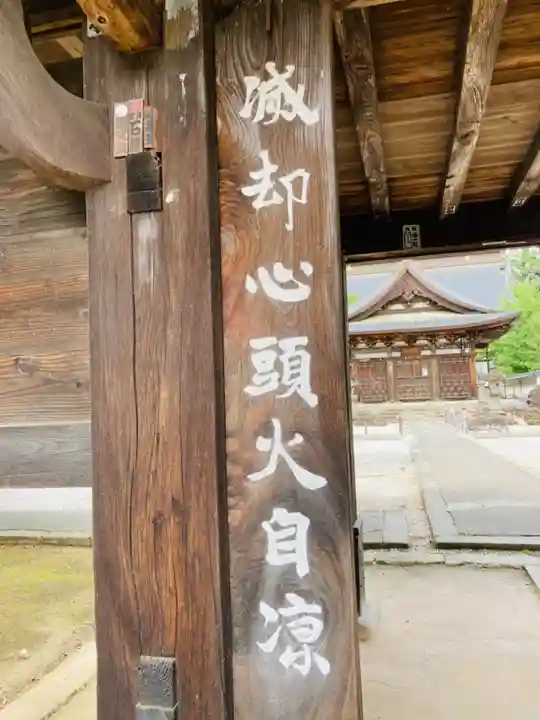 滅却心頭火自凉